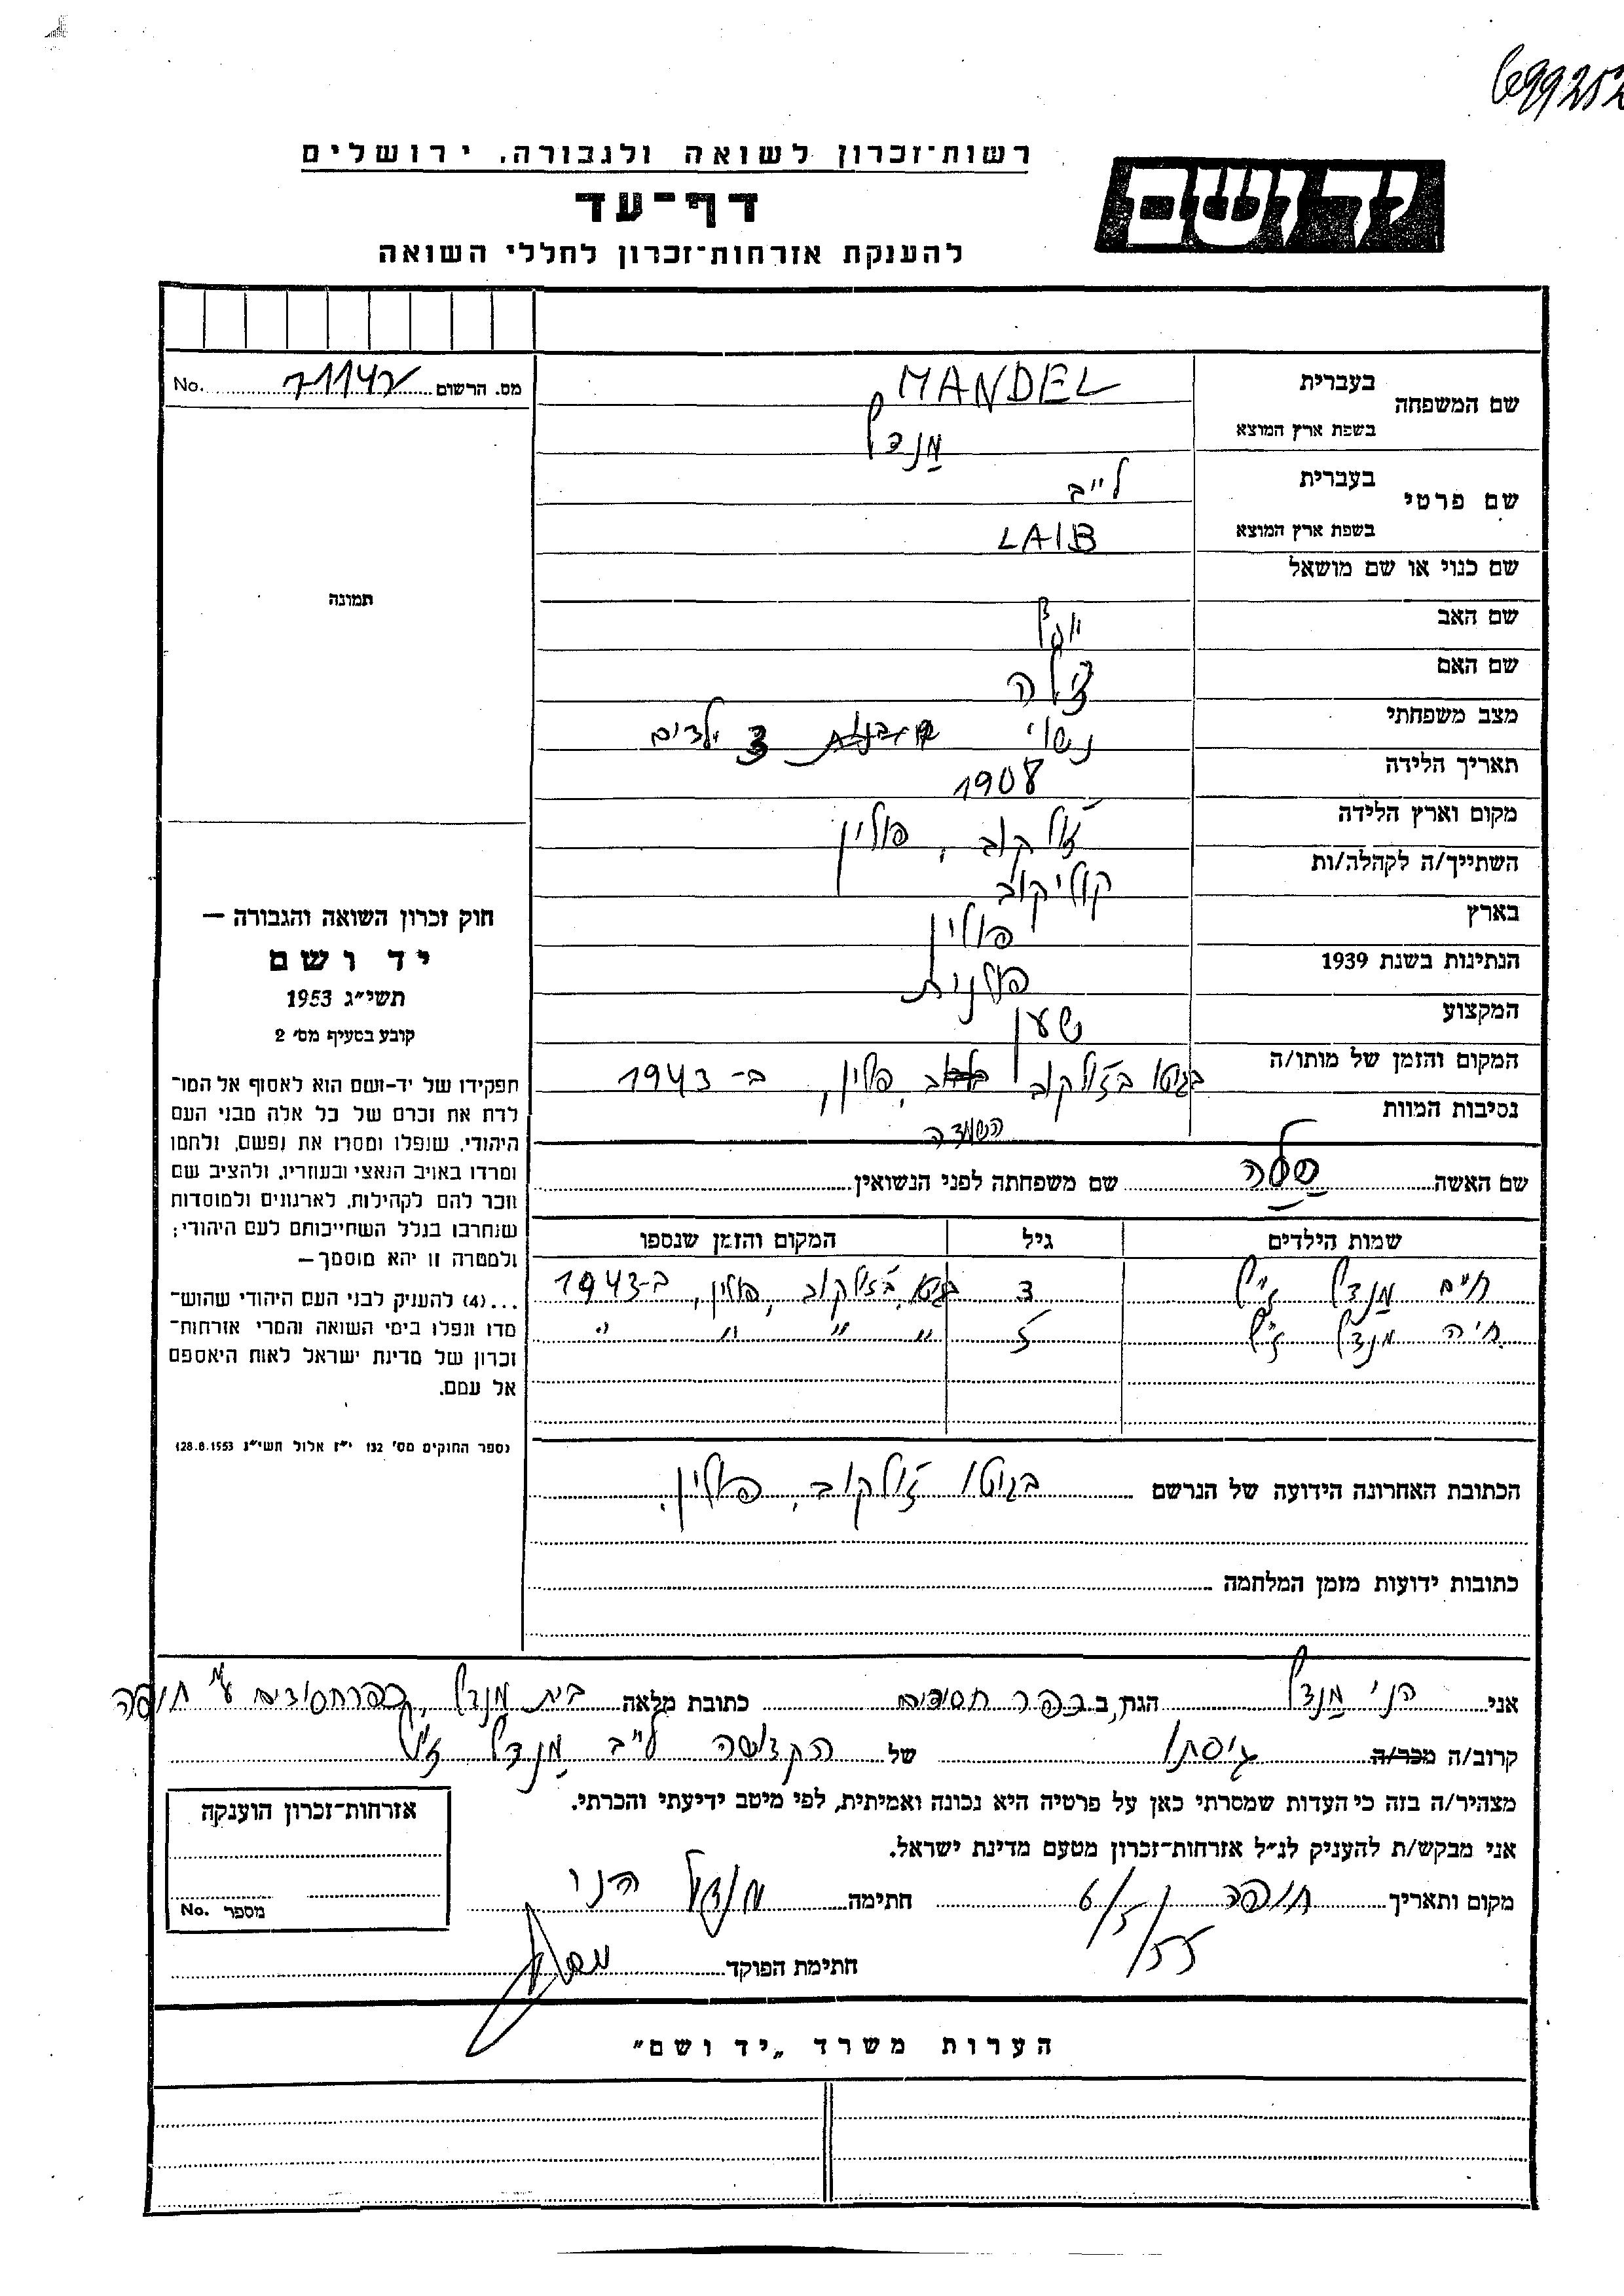 699252
רשות־זכרון לשואה ולגבורה, ירושלים
יד ושם
דף־עד
להענקת אזרחות־זכרון לחללי השואה
מס. הרשום 71142 No.
שם המשפחה בעברית MANDEL
בשפת ארץ המוצא מַנדל
שם פרטי בעברית לייב
בשפת ארץ המוצא LAIB
שם כנוי או שם מושאל
תמונה
שם האב
שם האם צילה
מצב משפחתי נשוי 3 ילדים
תאריך הלידה 1908
מקום וארץ הלידה ז'ולקוב, פולין
השתייך/ה לקהלה/ות קוליקוב
בארץ פולין
הנתינות בשנת 1939 פולנית
המקצוע שען
המקום והזמן של מותו/ה בגיטו בז'ולקוב, פולין, ב- 1943
נסיבות המוות השמדה
חוק זכרון השואה והגבורה —
יד ושם
תשי״ג 1953
קובע בסעיף מס׳ 2
תפקידו של יד-ושם הוא לאסוף אל המו־
לדת את זכרם של כל אלה מבני העם
היהודי, שנפלו ומסרו את נפשם, נלחמו
ומרדו באויב הנאצי ובעוזריו, ולהציב שם
וזכר להם לקהילות, לארגונים ולמוסדות
שנחרבו בגלל השתייכותם לעם היהודי;
ולמטרה זו יהא מוסמך—
...(4) להענית לבני העם היהודי שהוש־
מדו ונפלו בימי השואה והמרי אזרחות־
זכרון של מדינת ישראל לאות היאספם
אל עמם.
(ספר החוקים מס׳ 132 י״ז אלול תשי״ג 28.8.1953)
שם האשה שלה שם משפחתה לפני הנשואין
שמות הילדים גיל המקום והזמן שנספו
חיים מַנדל ז״ל 3 בגיטו בז'ולקוב, פולין, ב-1943
חיה מנדל ז״ל 5 " " " "
הכתובת האחרונה הידועה של הנרשם בגיטו ז'ולקוב, פולין.
כתובות ידועות מזמן המלחמה
אני הני מַנדל הגר, ב בכפר חסידים כתובת מלאה בית מנדל, כפר חסידים ע״י חיפה
קרוב/ה מכר/ה גיסתו של הקדוש לייב מַנדל ז״ל
מצהיר/ה בזה כי העדות שמסרתי כאן על פרטיה היא נכונה ואמיתית, לפי מיטב ידיעתי והכרתי.
אני מבקש/ת להעניק לנ״ל אזרחות־זכרון מטעם מדינת ישראל.
מקום ותאריך חיפה 6/5/55 חתימה מנדל הני
חתימת הפוקד
אזרחות־זכרון הוענקה
מספר No.
הערות משרד „יד ושם״